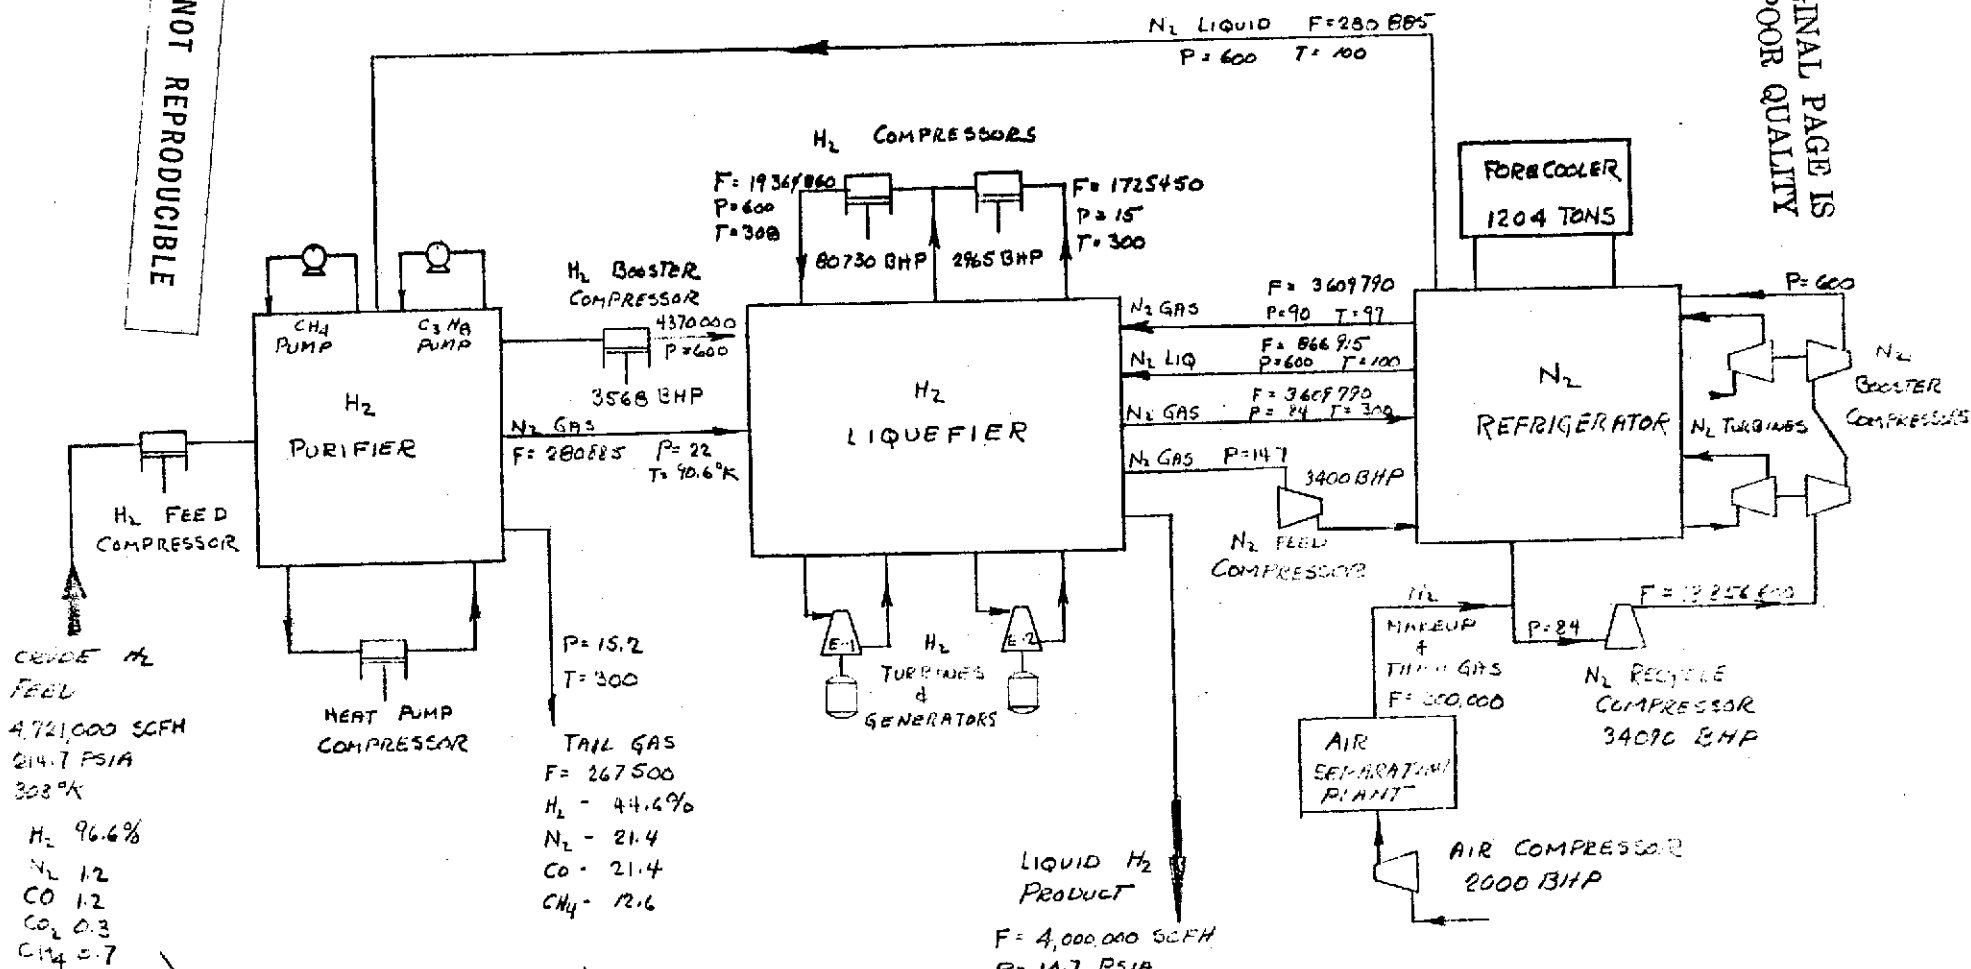 NOT REPRODUCIBLE
GINAL PAGE IS
POOR QUALITY
N2 LIQUID F=280885
P=600 T=100
H2 COMPRESSORS
P=600
T=308
80730 BHP
2965 BHP
F=1725450
P=15
T=300
FORECOOLER
1204 TONS
H2 BOOSTER
COMPRESSOR
4370000
P=600
3568 BHP
CH4
PUMP
C3H8
PUMP
H2
PURIFIER
N2 GAS
F=280885 P=22
T=90.6°K
H2
LIQUEFIER
N2 GAS
F=3609790
P=90 T=97
N2 LIQ
F=866915
P=600 T=100
N2 GAS
F=3609790
P=84 T=300
N2 GAS P=147
3400 BHP
N2 FEED
COMPRESSOR
N2
REFRIGERATOR
P=600
N2
BOOSTER
COMPRESSORS
N2 TURBINES
H2 FEED
COMPRESSOR
CRUDE H2
FEED
4,721,000 SCFH
214.7 PSIA
308°K
H2 96.6%
N2 1.2
CO 1.2
CO2 0.3
CH4 0.7
HEAT PUMP
COMPRESSOR
P=15.2
T=300
TAIL GAS
F=267500
H2 - 44.6%
N2 - 21.4
CO - 21.4
CH4 - 12.6
E-1
E-2
H2
TURBINES
&
GENERATORS
LIQUID H2
PRODUCT
F=4,000,000 SCFH
P=14.7 PSIA
N2
MAKEUP
&
GAS
P=84
N2 RECYCLE
COMPRESSOR
34090 BHP
AIR
SEPARATION
PLANT
AIR COMPRESSOR
2000 BHP